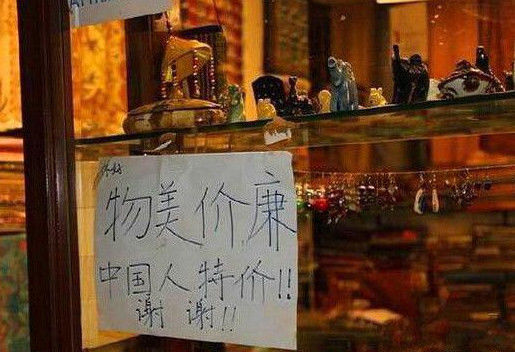 你好
物美价廉
中国人特价!!
谢谢!!